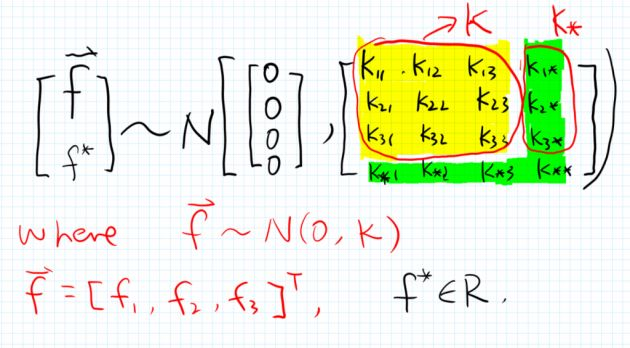 → K K*
[f⃗ f*] ~ N [[0 0 0 0], [K11 K12 K13 K1* K21 K22 K23 K2* K31 K32 K33 K3* K*1 K*2 K*3 K**]])
where f⃗ ~ N(0, K)
f⃗ = [f1, f2, f3]ᵀ, f* ∈ R.